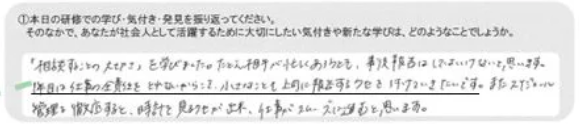 ①本日の研修での学び・気付き・発見を振り返ってください。
そのなかで、あなたが社会人として活躍するために大切にしたい気付きや新たな学びは、どのようなことでしょうか。
「相談することの大切さ」を学びました。たとえ相手が忙しくあろうとも、事後報告はしてはいけないと思います。
1年目は仕事の全責任をとれないからこそ、小さなことも上司に報告するクセを付けていきたいです。またスケジュール
管理を徹底すると、時計を見るクセが出来、仕事がスムーズに進むと思います。